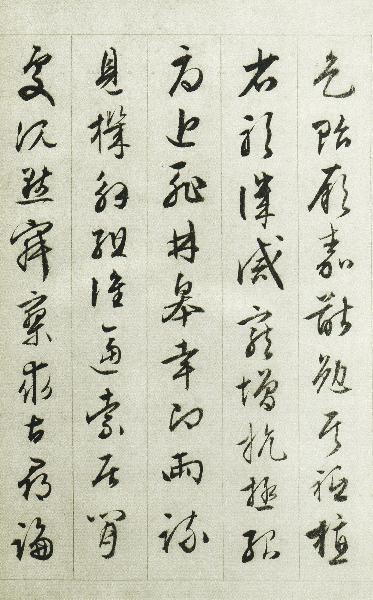 色貽厥嘉猷勉其祗植
省躬譏誡寵增抗極殆
辱近恥林皋幸即兩疏
見機解組誰逼索居閒
處沉默寂寥求古尋論